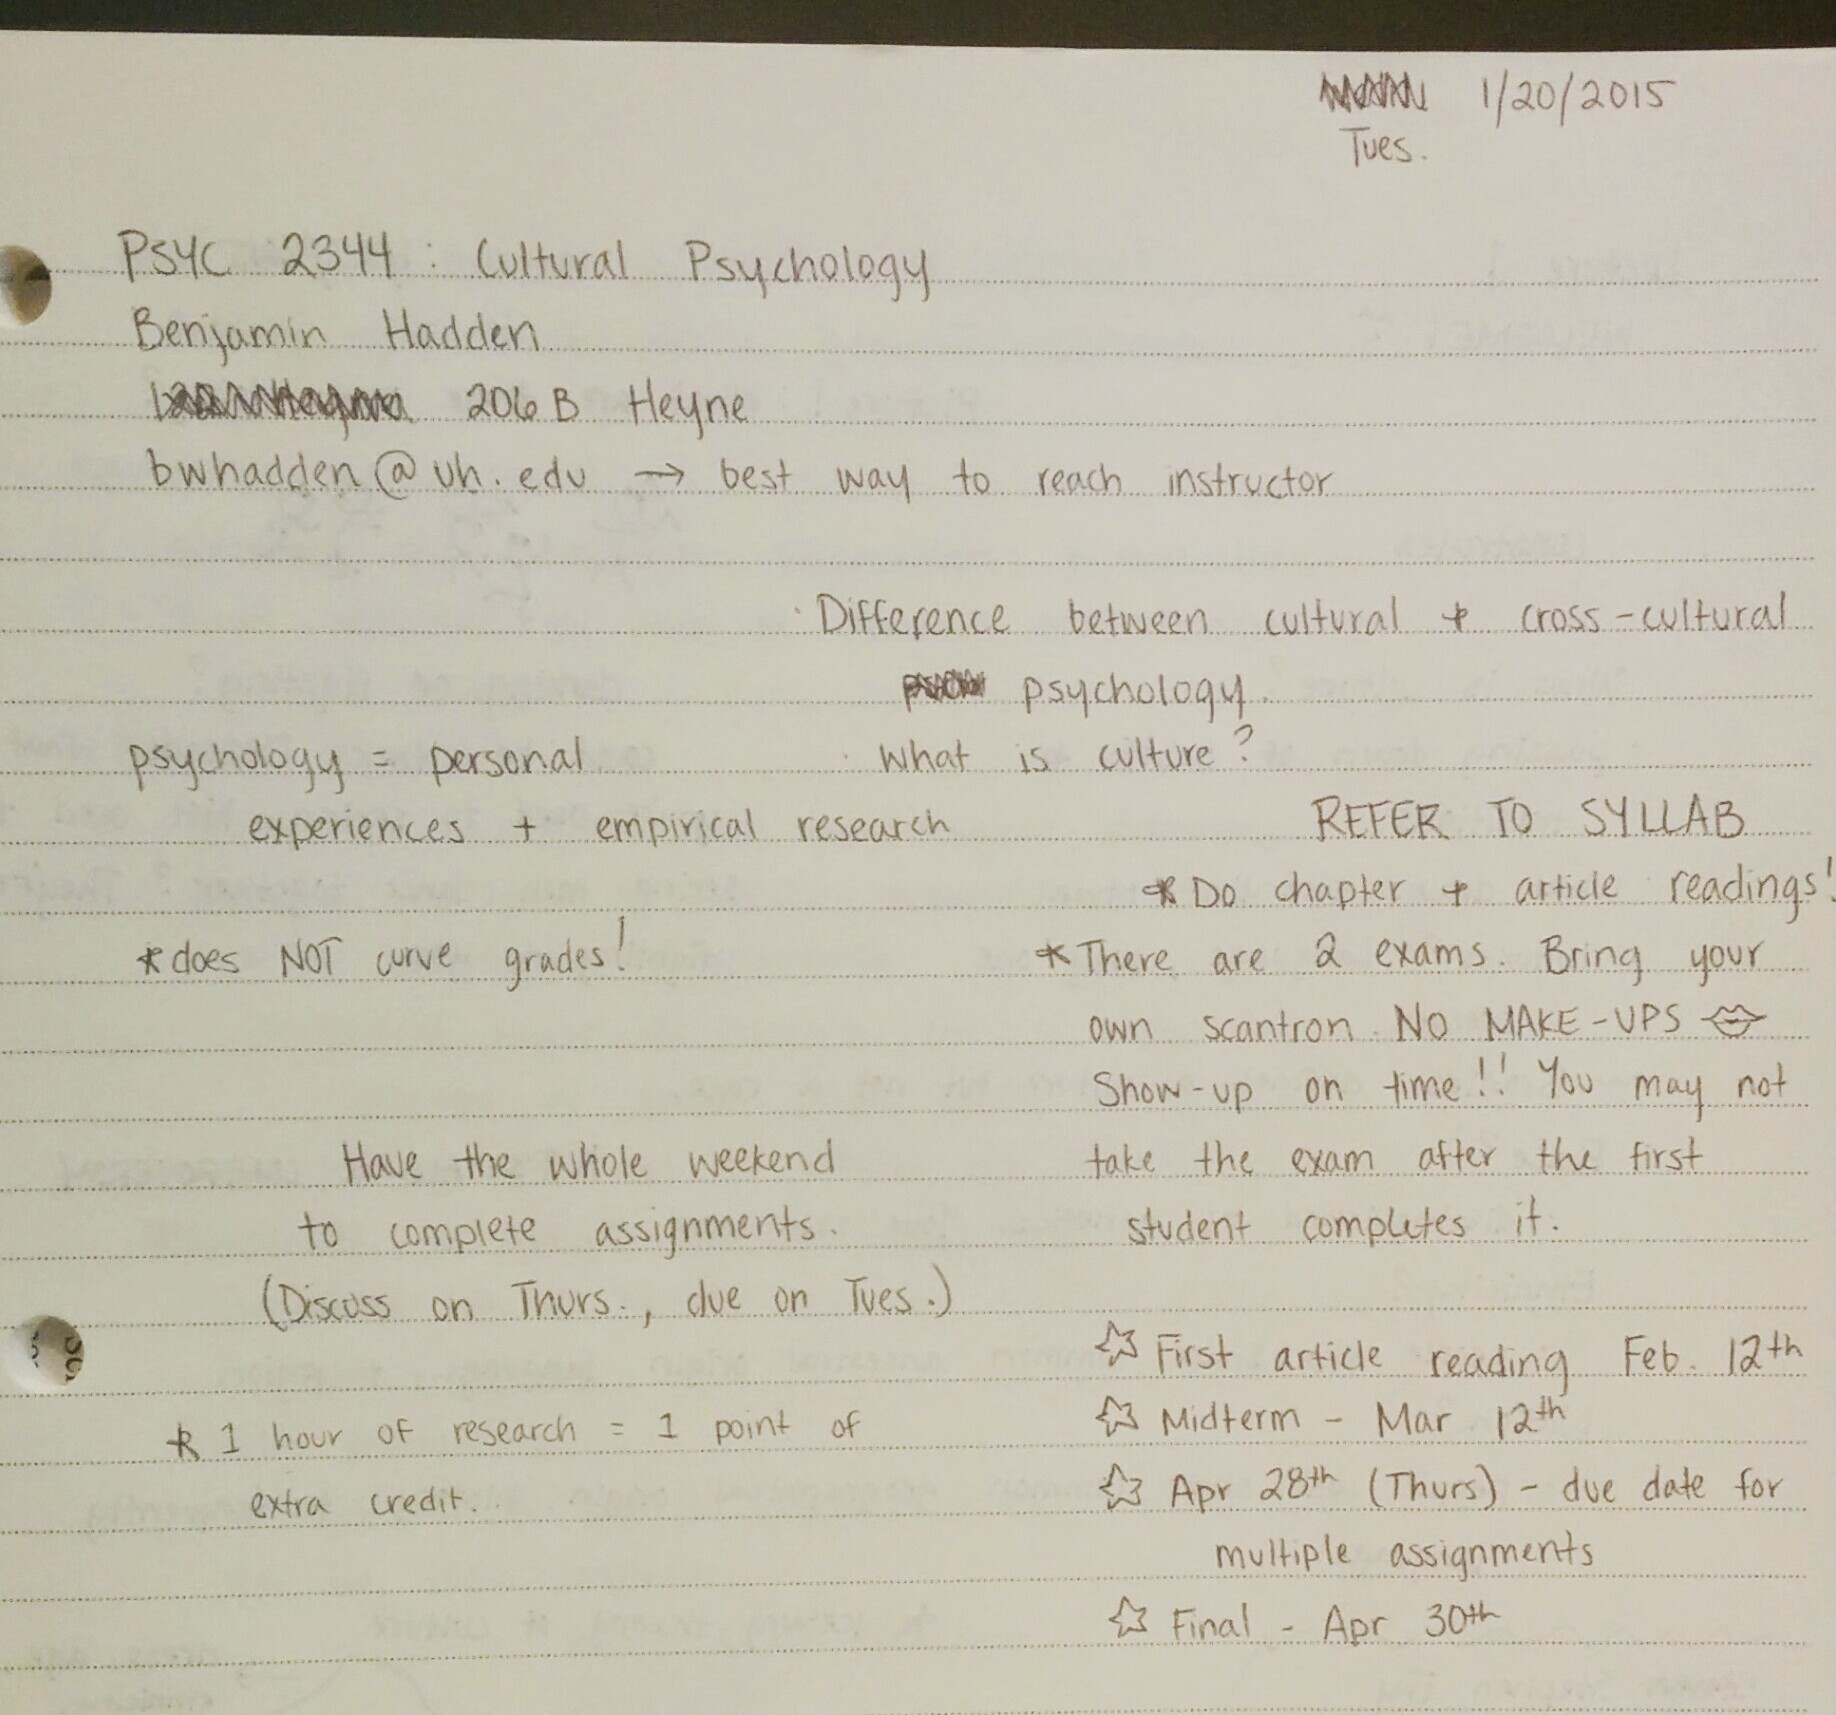 1/20/2015
Tues.
PSYC 2344 : Cultural Psychology
Benjamin Hadden
206 B Heyne
bwhadden@uh.edu → best way to reach instructor
· Difference between cultural + cross-cultural
psychology.
· What is culture?
psychology = personal
experiences + empirical research
REFER TO SYLLAB
* Do chapter + article readings!
* does NOT curve grades!
* There are 2 exams. Bring your
own scantron. NO MAKE-UPS
Show-up on time!! You may not
take the exam after the first
student completes it.
Have the whole weekend
to complete assignments.
(Discuss on Thurs., due on Tues.)
☆ First article reading Feb. 12th
☆ Midterm - Mar 12th
☆ Apr 28th (Thurs) - due date for
multiple assignments
☆ Final - Apr 30th
* 1 hour of research = 1 point of
extra credit.